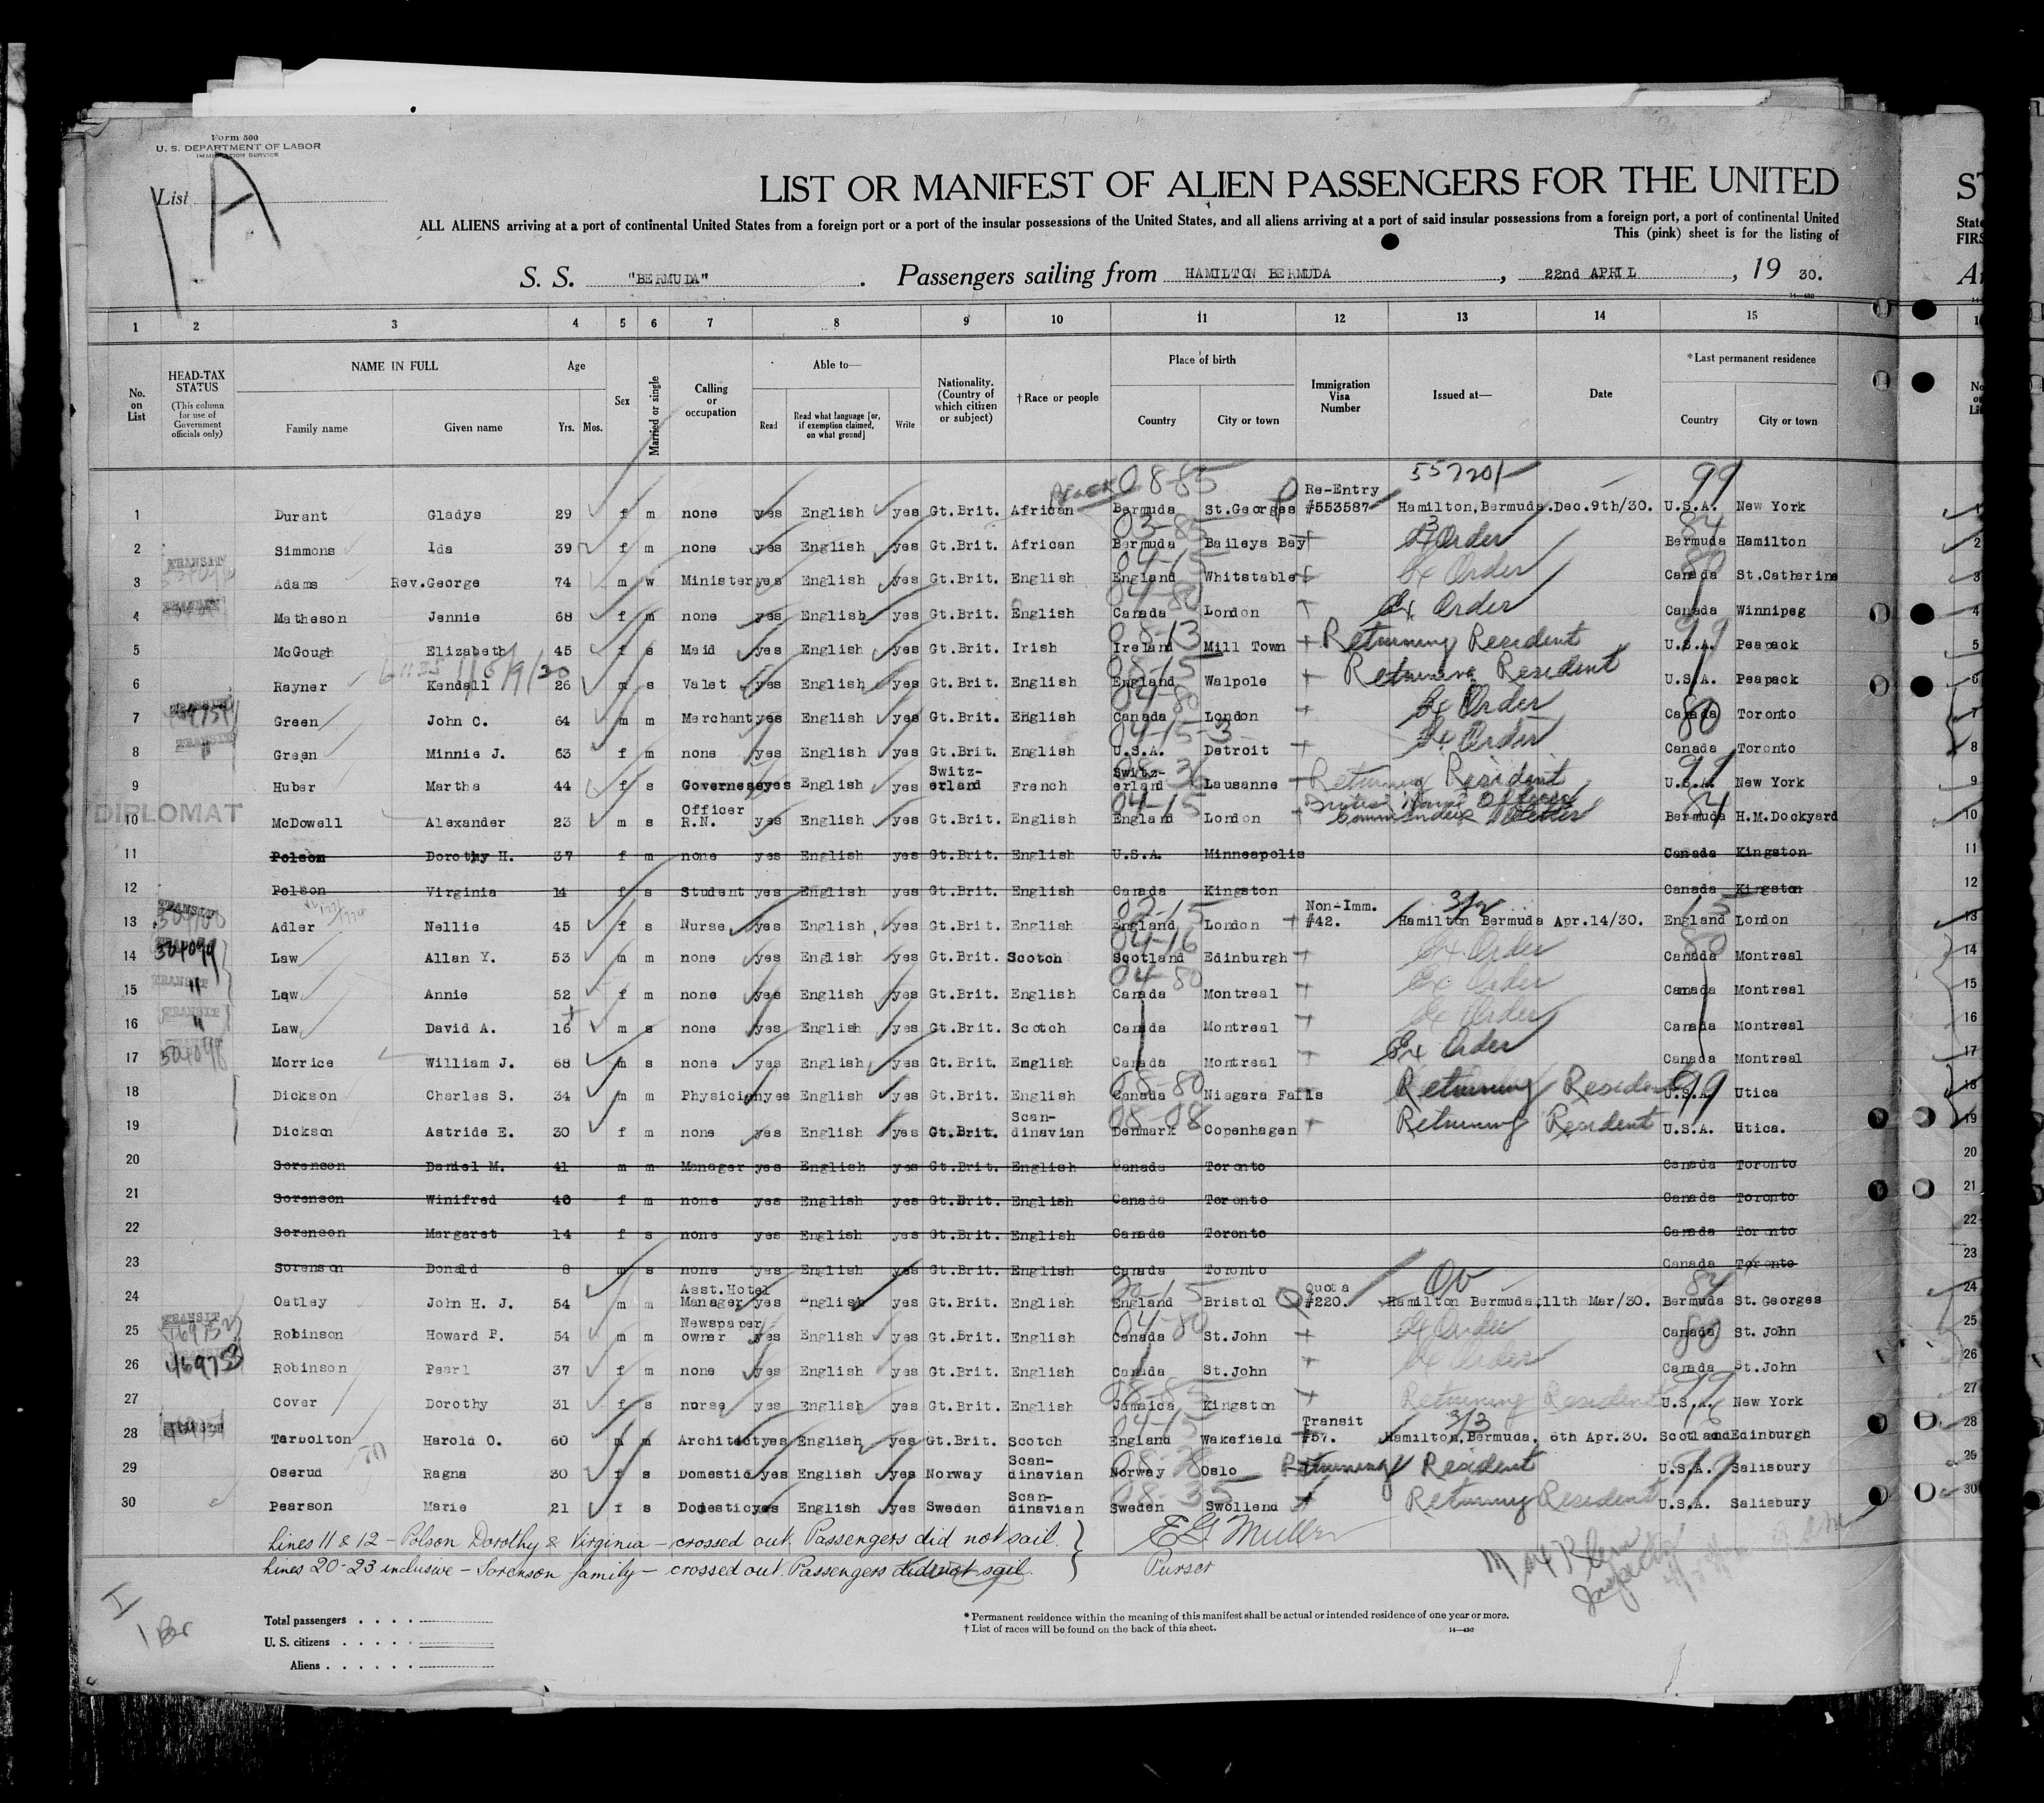 Form 500
U. S. DEPARTMENT OF LABOR
IMMIGRATION SERVICE
List A
LIST OR MANIFEST OF ALIEN PASSENGERS FOR THE UNITED
ALL ALIENS arriving at a port of continental United States from a foreign port or a port of the insular possessions of the United States, and all aliens arriving at a port of said insular possessions from a foreign port, a port of continental United
This (pink) sheet is for the listing of
S. S. "BERMUDA". Passengers sailing from HAMILTON BERMUDA, 22nd APRIL, 19 30.
1 2 3 4 5 6 7 8 9 10 11 12 13 14 15
No. on List
HEAD-TAX STATUS (This column for use of Government officials only)
NAME IN FULL Family name Given name
Age Yrs. Mos.
Sex
Married or single
Calling or occupation
Able to— Read Read what language [or, if exemption claimed, on what ground] Write
Nationality. (Country of which citizen or subject)
† Race or people
Place of birth Country City or town
Immigration Visa Number
Issued at—
Date
* Last permanent residence Country City or town
08-85 55720/ 99
Re-Entry
1 Durant Gladys 29 f m none yes English yes Gt.Brit. African Bermuda St.Georges #553587 Hamilton, Bermuda. Dec.9th/30. U.S.A. New York 1
03-85 3 84
2 Simmons Ida 39 f m none yes English yes Gt.Brit. African Bermuda Baileys Bay Ex Order Bermuda Hamilton 2
TRANSIT 04-15 80
3 Adams Rev.George 74 m w Minister yes English yes Gt.Brit. English England Whitstable Ex Order Canada St.Catherine 3
TRANSIT 04-80
4 Matheson Jennie 68 f m none yes English yes Gt.Brit. English Canada London Ex Order Canada Winnipeg 4
08-13 99
5 McGough Elizabeth 45 f s Maid yes English yes Gt.Brit. Irish Ireland Mill Town Returning Resident U.S.A. Peapack 5
08-15
6 Rayner Kendall 26 m s Valet yes English yes Gt.Brit. English England Walpole Returning Resident U.S.A. Peapack 6
TRANSIT 04-80
7 Green John C. 64 m m Merchant yes English yes Gt.Brit. English Canada London Ex Order Canada 80 Toronto 7
TRANSIT " 04-15-3
8 Green Minnie J. 63 f m none yes English yes Gt.Brit. English U.S.A. Detroit Ex Order Canada Toronto 8
08-36 99
9 Huber Martha 44 f s Governess yes English yes Switz-erland French Switz-erland Lausanne Returning Resident U.S.A. New York 9
DIPLOMAT 04-15 British Naval Officer 84
10 McDowell Alexander 23 m s Officer R.N. yes English yes Gt.Brit. English England London Commanders Letter Bermuda H.M.Dockyard 10
11 Polson Dorothy H. 37 f m none yes English yes Gt.Brit. English U.S.A. Minneapolis Canada Kingston 11
12 Polson Virginia 14 f s Student yes English yes Gt.Brit. English Canada Kingston Canada Kingston 12
TRANSIT 02-15 Non-Imm. 3/2 15
13 Adler Nellie 45 f s Nurse yes English yes Gt.Brit. English England London #42. Hamilton Bermuda Apr.14/30. England London 13
04-16 80
14 Law Allan Y. 53 m m none yes English yes Gt.Brit. Scotch Scotland Edinburgh Ex Order Canada Montreal 14
TRANSIT " 04-80
15 Law Annie 52 f m none yes English yes Gt.Brit. English Canada Montreal Ex Order Canada Montreal 15
TRANSIT "
16 Law David A. 16 m s none yes English yes Gt.Brit. Scotch Canada Montreal Ex Order Canada Montreal 16
17 Morrice William J. 68 m s none yes English yes Gt.Brit. English Canada Montreal Ex Order Canada Montreal 17
08-80 99
18 Dickson Charles S. 34 m m Physician yes English yes Gt.Brit. English Canada Niagara Falls Returning Resident U.S.A. Utica 18
08-08
19 Dickson Astride E. 30 f m none yes English yes Gt.Brit. Scan-dinavian Denmark Copenhagen Returning Resident U.S.A. Utica. 19
20 Sorenson Daniel M. 41 m m Manager yes English yes Gt.Brit. English Canada Toronto Canada Toronto 20
21 Sorenson Winifred 40 f m none yes English yes Gt.Brit. English Canada Toronto Canada Toronto 21
22 Sorenson Margaret 14 f s none yes English yes Gt.Brit. English Canada Toronto Canada Toronto 22
23 Sorenson Donald 8 m s none yes English yes Gt.Brit. English Canada Toronto Canada Toronto 23
Quota 84
24 Oatley John H. J. 54 m m Asst.Hotel Manager yes English yes Gt.Brit. English England Bristol #220. Hamilton Bermuda, 11th Mar/30. Bermuda St.Georges 24
TRANSIT 04-80
25 Robinson Howard P. 54 m m Newspaper owner yes English yes Gt.Brit. English Canada St.John Ex Order Canada 80 St. John 25
469753
26 Robinson Pearl 37 f m none yes English yes Gt.Brit. English Canada St.John Ex Order Canada St.John 26
08-85 99
27 Cover Dorothy 31 f s nurse yes English yes Gt.Brit. English Jamaica Kingston Returning Resident U.S.A. New York 27
04-15 Transit 3/3 16
28 Tarbolton Harold O. 60 m m Architect yes English yes Gt.Brit. Scotch England Wakefield #57. Hamilton, Bermuda, 6th Apr.30. Scotland Edinburgh 28
29 Oserud Ragna 30 f s Domestic yes English yes Norway Scan-dinavian Norway Oslo Returning Resident U.S.A. 99 Salisbury 29
08-35
30 Pearson Marie 21 f s Domestic yes English yes Sweden Scan-dinavian Sweden Swollend Returning Resident U.S.A. Salisbury 30
Lines 11 & 12 - Polson Dorothy & Virginia - crossed out. Passengers did not sail.
E G Muller
Lines 20-23 inclusive - Sorenson family - crossed out. Passengers did not sail.
Purser
Inspector
Total passengers
U. S. citizens
Aliens
* Permanent residence within the meaning of this manifest shall be actual or intended residence of one year or more.
† List of races will be found on the back of this sheet.
14—430